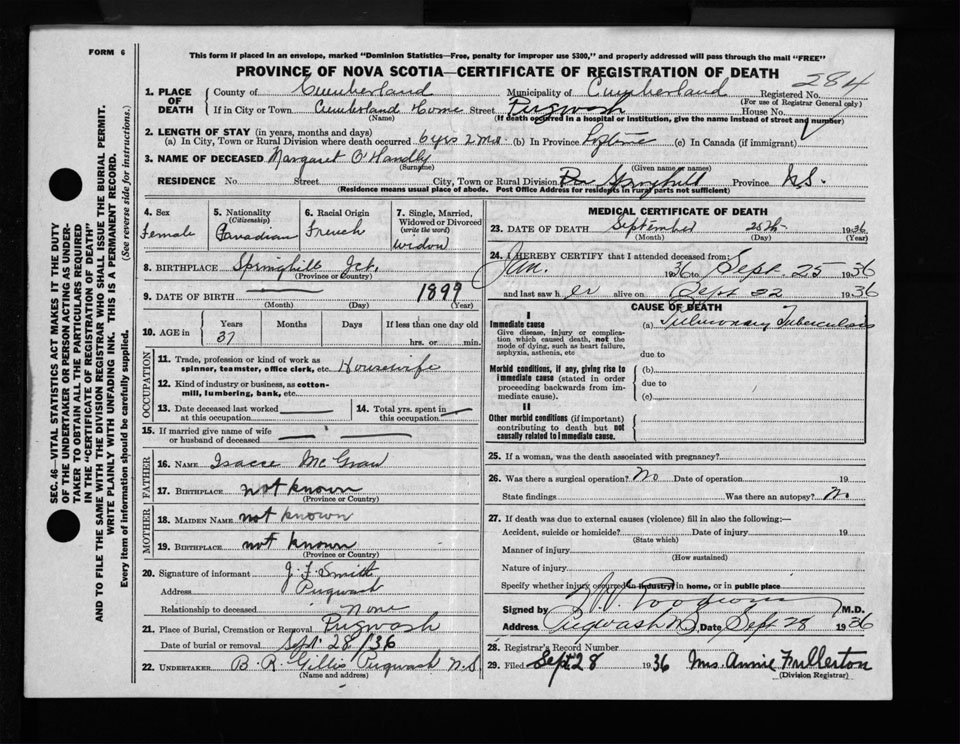 FORM 6
This form if placed in an envelope, marked "Dominion Statistics—Free, penalty for improper use $300," and properly addressed will pass through the mail "FREE"
PROVINCE OF NOVA SCOTIA—CERTIFICATE OF REGISTRATION OF DEATH
284
1. PLACE OF DEATH County of Cumberland Municipality of Cumberland Registered No.
(For use of Registrar General only)
If in City or Town Cumberland Home Street Pugwash House No.
(Name) (If death occurred in a hospital or institution, give the name instead of street and number)
2. LENGTH OF STAY (in years, months and days)
(a) In City, Town or Rural Division where death occurred 6 yrs 2 mos (b) In Province Lifetime (c) In Canada (if immigrant)
3. NAME OF DECEASED Margaret O'Handly
(Surname) (Given name or names)
RESIDENCE No. Street City, Town or Rural Division Springhill Province N.S.
(Residence means usual place of abode. Post Office Address for residents in rural parts not sufficient)
4. Sex Female
5. Nationality (Citizenship) Canadian
6. Racial Origin French
7. Single, Married, Widowed or Divorced (write the word) widow
8. BIRTHPLACE Springhill Jct.
(Province or Country)
9. DATE OF BIRTH 1899
(Month) (Day) (Year)
10. AGE in Years 37 Months Days If less than one day old hrs. or min.
OCCUPATION
11. Trade, profession or kind of work as spinner, teamster, office clerk, etc. Housewife
12. Kind of industry or business, as cotton-mill, lumbering, bank, etc.
13. Date deceased last worked at this occupation
14. Total yrs. spent in this occupation
15. If married give name of wife or husband of deceased
FATHER
16. NAME Isacce McGraw
17. BIRTHPLACE not known
(Province or Country)
MOTHER
18. MAIDEN NAME not known
19. BIRTHPLACE not known
(Province or Country)
20. Signature of informant J. F. Smith
Address Pugwash
Relationship to deceased None
21. Place of Burial, Cremation or Removal Pugwash
Date of burial or removal Sept. 28/36
22. UNDERTAKER B. R. Gillis Pugwash N.S
(Name and address)
MEDICAL CERTIFICATE OF DEATH
23. DATE OF DEATH September 25th 1936
(Month) (Day) (Year)
24. I HEREBY CERTIFY that I attended deceased from:
Jan. 1936 to Sept. 25 1936
and last saw her alive on Sept 22 1936
CAUSE OF DEATH
I
Immediate cause (a) Pulmonary Tuberculosis
Give disease, injury or complication which caused death, not the mode of dying, such as heart failure, asphyxia, asthenia, etc
due to
Morbid conditions, if any, giving rise to immediate cause (stated in order proceeding backwards from immediate cause).
(b)
due to
(c)
II
Other morbid conditions (if important) contributing to death but not causally related to immediate cause.
25. If a woman, was the death associated with pregnancy?
26. Was there a surgical operation? No Date of operation 19
State findings Was there an autopsy? No
27. If death was due to external causes (violence) fill in also the following:—
Accident, suicide or homicide? Date of injury 19
(State which)
Manner of injury
(How sustained)
Nature of injury
Specify whether injury occurred in industry, in home, or in public place
Signed by M.D.
Address Pugwash NS Date Sept 28 1936
28. Registrar's Record Number
29. Filed Sept. 28 1936 Mrs. Annie Fullerton
(Division Registrar)
SEC. 46—VITAL STATISTICS ACT MAKES IT THE DUTY
OF THE UNDERTAKER OR PERSON ACTING AS UNDER-
TAKER TO OBTAIN ALL THE PARTICULARS REQUIRED
IN THE "CERTIFICATE OF REGISTRATION OF DEATH"
AND TO FILE THE SAME WITH THE DIVISION REGISTRAR WHO SHALL ISSUE THE BURIAL PERMIT.
WRITE PLAINLY WITH UNFADING INK. THIS IS A PERMANENT RECORD.
Every item of information should be carefully supplied. (See reverse side for instructions.)